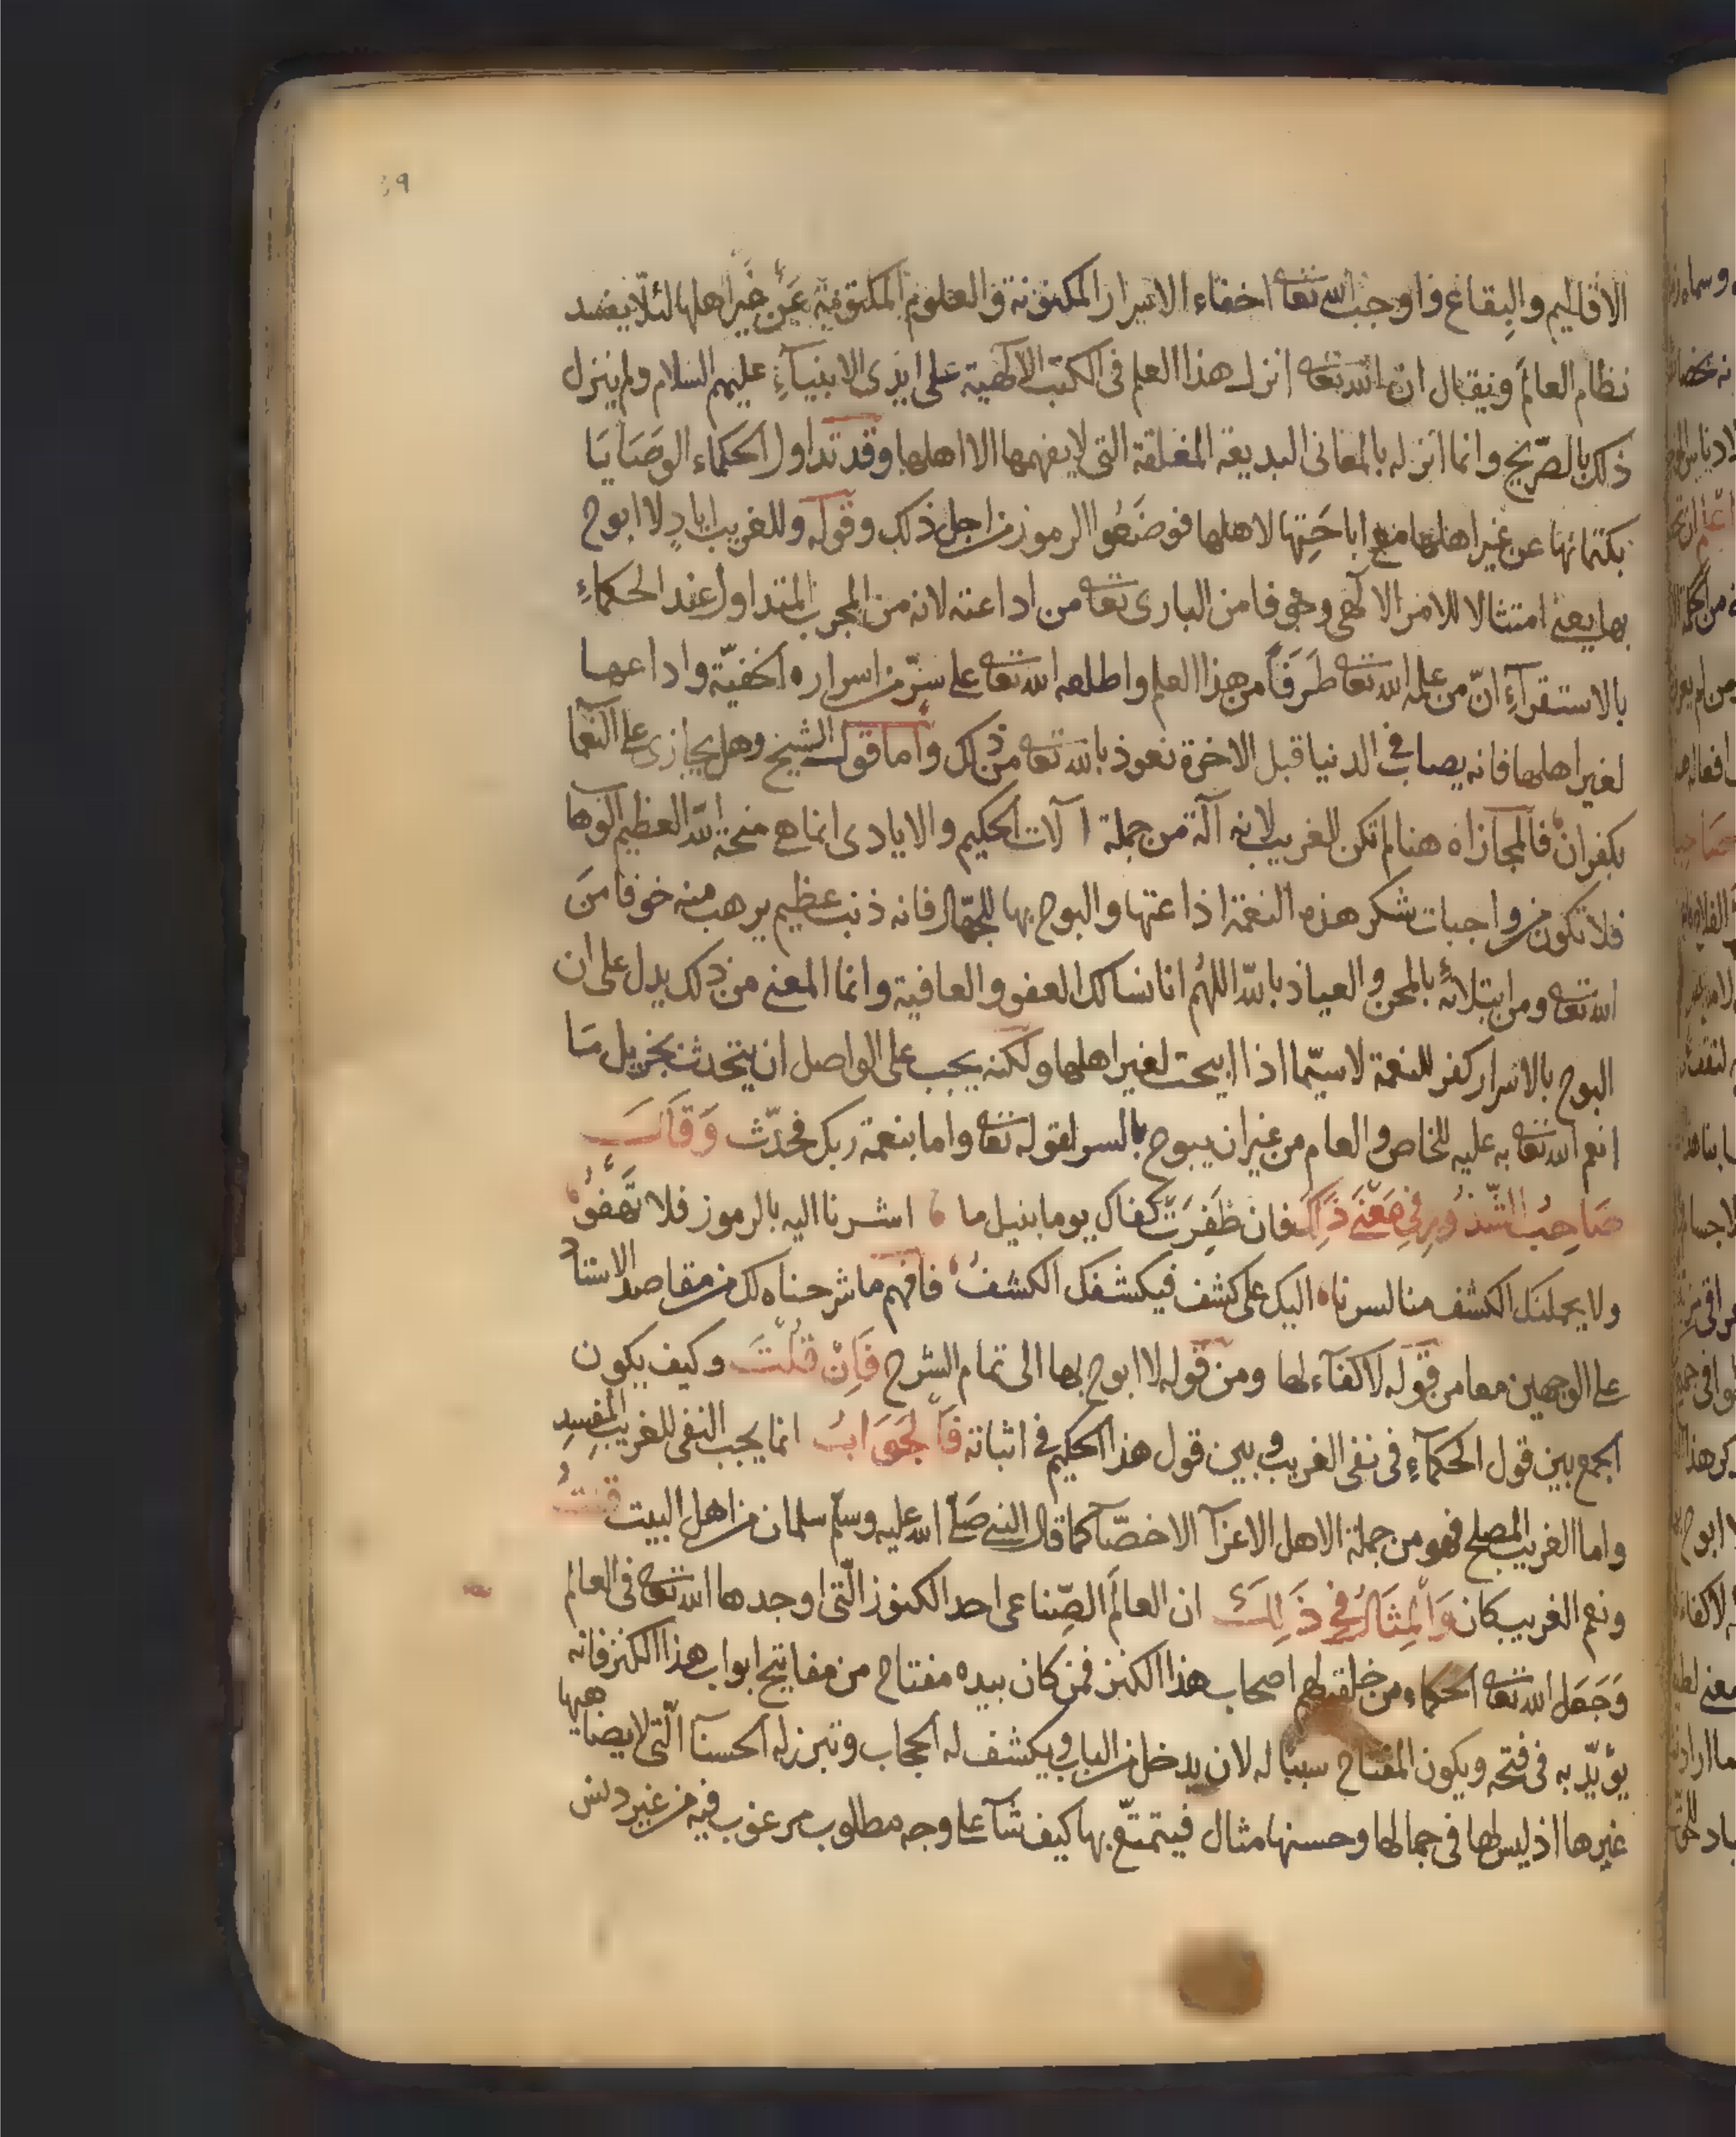 ٤٩
الاقاليم والبقاع واوجب الله تعا اخفاء الاسرار المكنونة والعلوم المكتومة عن غير اهلها لئلا يفسد
نظام العالم ويقال ان الله تعا انزل هذا العلم فى الكتب الالهية على ايدى الانبياء عليهم السلام ولم ينزل
ذلك بالصريح وانما انزله بالمعانى البديعة المغلقة التى لا يفهمها الا اهلها وقد تداول الحكماء الوصايا
بكتمانها عن غير اهلها مع اباحتها لاهلها فوضعوا الرموز من اجل ذلك وقوله وللغريب اياد لا ابوح
بها يعنى امتثالا للامر الالهى وخوفا من البارى تعا من اداعته لانه من المجرب المتداول عند الحكماء
بالاستقرآء ان من علمه الله تعا طرفا من هذا العلم واطلعه الله تعا على سر من اسراره الخفية واداعها
لغير اهلها فانه يصاب فى الدنيا قبل الاخرة نعوذ بالله تعا من ذلك واما قول الشيخ وهل يجازى على النعما
بكفران فالمجازاه هنا لم تكن للغريب لانه آلة من جملة آلات الحكيم والايادى انما هى منحة الله العظيم الوهاب
فلا تكون من واجبات شكر هذه النعمة اذاعتها والبوح بها للجهال فانه ذنب عظيم يرهب منه خوفا من
الله تعا ومن ابتلائه بالمحن والعياذ بالله اللهم انا نسالك العفو والعافية وانما المعنى من ذلك يدل على ان
البوح بالاسرار كفر للنعمة لا سيما اذا ابيحت لغير اهلها ولكنه يجب على الواصل ان يتحدث بجزيل ما
انعم الله تعا به عليه للخاص والعام من غير ان يبوح بالسر لقوله تعا واما بنعمة ربك فحدث وقال
صاحب الشذور فى معنى ذلك فان ظفرت كفاك يوما بنيل ما اشرنا اليه بالرموز فلا تهفو
ولا يحملنك الكشف منا لسرناه اليك على كشف فيكشفك الكشف فافهم ما شرحناه لك من مقاصد الاستاد
على الوجهين معا من قوله لا كفآء لها ومن قوله لا ابوح بها الى تمام الشرح فان قلت وكيف يكون
الجمع بين قول الحكمآء فى نفى الغريب وبين قول هذا الحكيم فى اثباته فالجواب انما يجب النفى للغريب المفسد
واما الغريب المصلح فهو من جملة الاهل الاعزآ الاخصآ كما قال النبى صلى الله عليه وسلم سلمان من اهل البيت قلت
ونعم الغريب كان والمثال فى ذلك ان العالم الصناعى احد الكنوز التى اوجدها الله تعا فى العالم
وجعل الله تعا الحكماء ومن خلقه لهم اصحاب هذا الكنز فمن كان بيده مفتاح من مفاتيح ابواب هذا الكنز فانه
يؤيد به فى فتحه ويكون المفتاح سببا له لان يدخل من الباب ويكشف له الحجاب وتبرز له الحسنآ التى لا يضاهيها
غيرها اذ ليس لها فى جمالها وحسنها مثال فيتمتع بها كيف شآ على وجه مطلوب مرغوب فيه من غير دنس